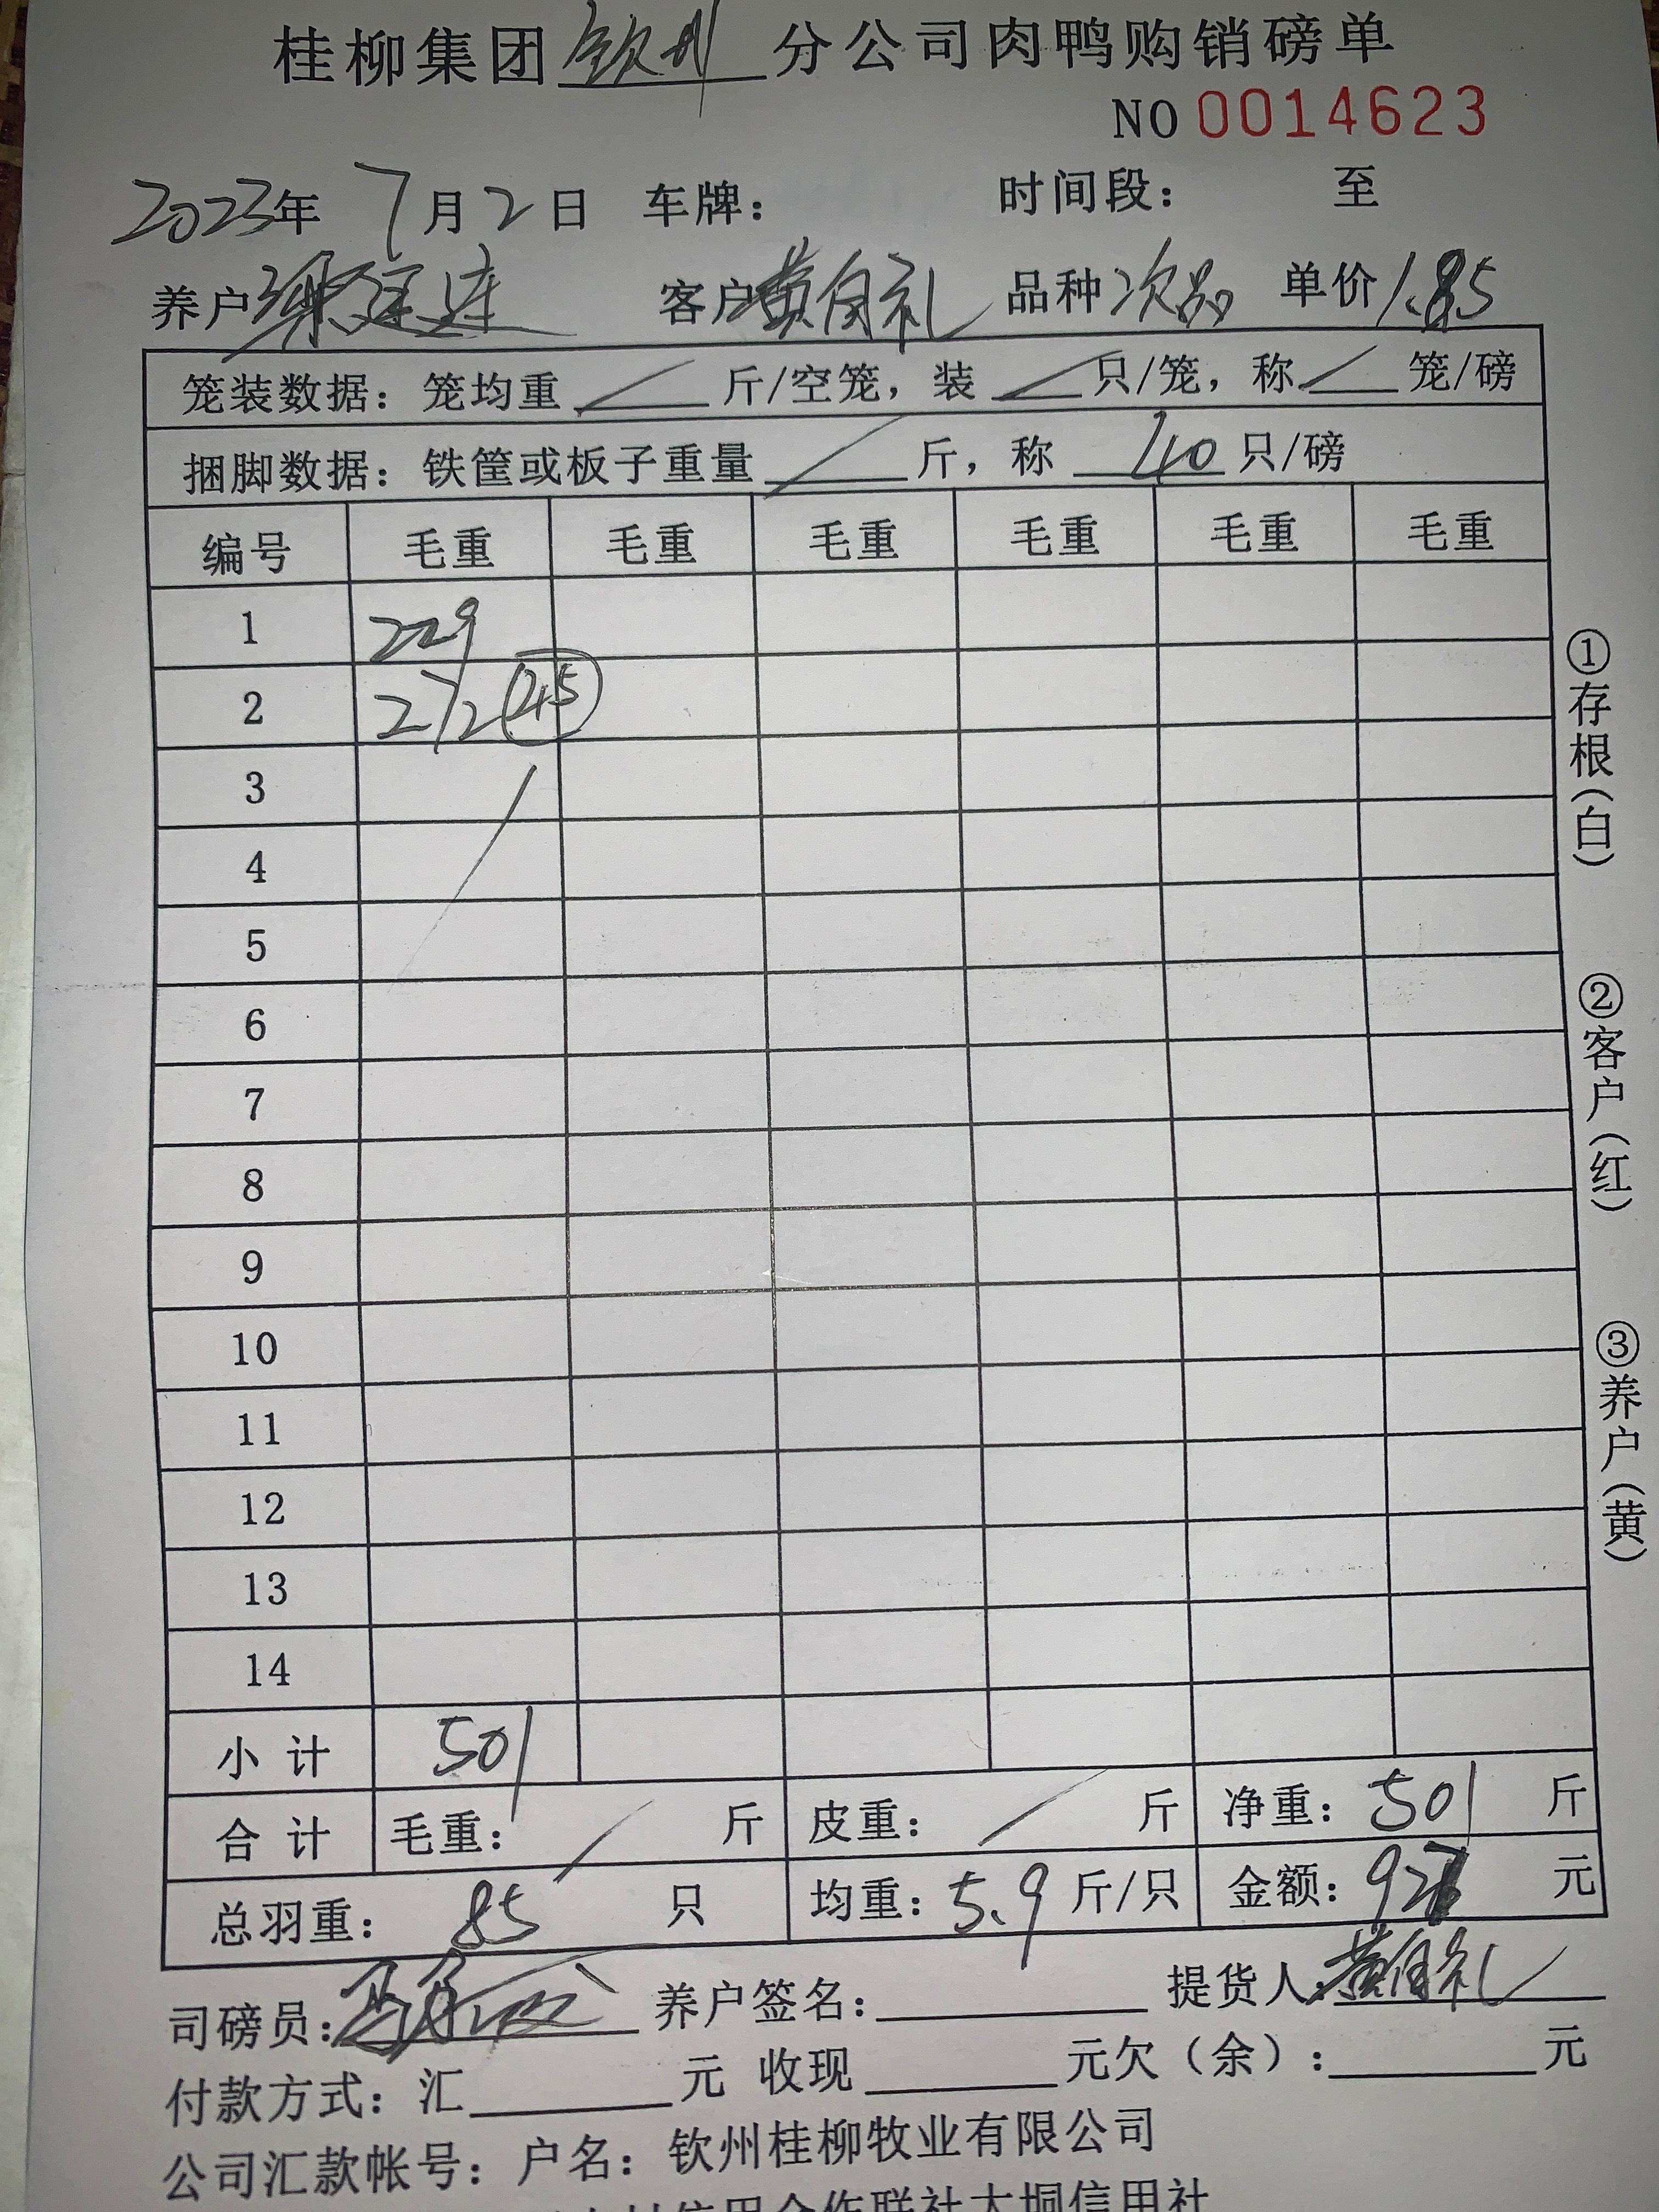 桂柳集团钦州分公司肉鸭购销磅单
NO 0014623
2023年 7月2日 车牌： 时间段： 至
养户 客户黄自礼 品种次品 单价1.85
笼装数据：笼均重 / 斤/空笼，装 / 只/笼，称 / 笼/磅
捆脚数据：铁筐或板子重量 / 斤，称 40 只/磅
编号 毛重 毛重 毛重 毛重 毛重 毛重
1 229
2 272 45
3
4
5
6
7
8
9
10
11
12
13
14
小计 501
合计 毛重： / 斤 皮重： / 斤 净重：501 斤
总羽重：85 只 均重：5.9 斤/只 金额：927 元
司磅员： 养户签名： 提货人：黄自礼
付款方式：汇 元 收现 元欠（余）： 元
公司汇款帐号：户名：钦州桂柳牧业有限公司
信用合作联社大垌信用社
①存根（白）
②客户（红）
③养户（黄）